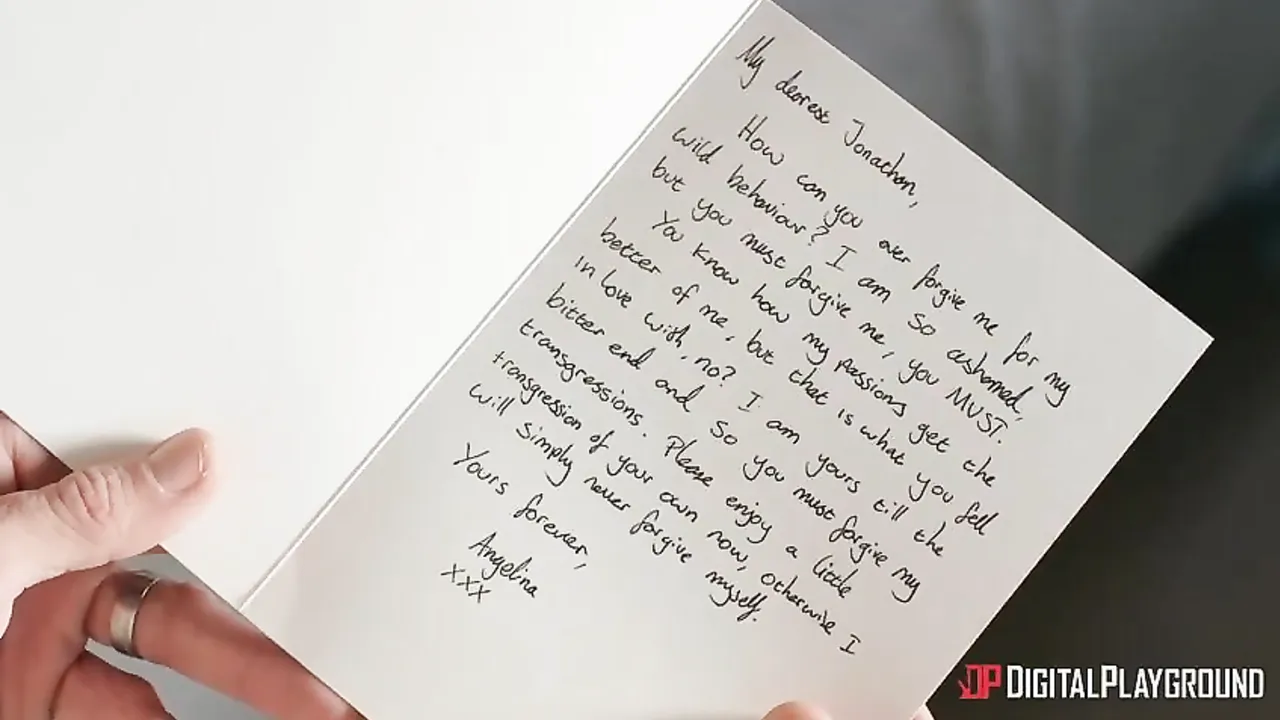 My dearest Jonathan,
How can you ever forgive me for my
wild behaviour? I am so ashamed,
but you must forgive me, you MUST.
You know how my passions get the
better of me, but that is what you fell
in love with, no? I am yours till the
bitter end and so you must forgive my
transgressions. Please enjoy a little
transgression of your own now, otherwise I
will simply never forgive myself.
Yours forever,
Angelina
xxx
DP DIGITALPLAYGROUND